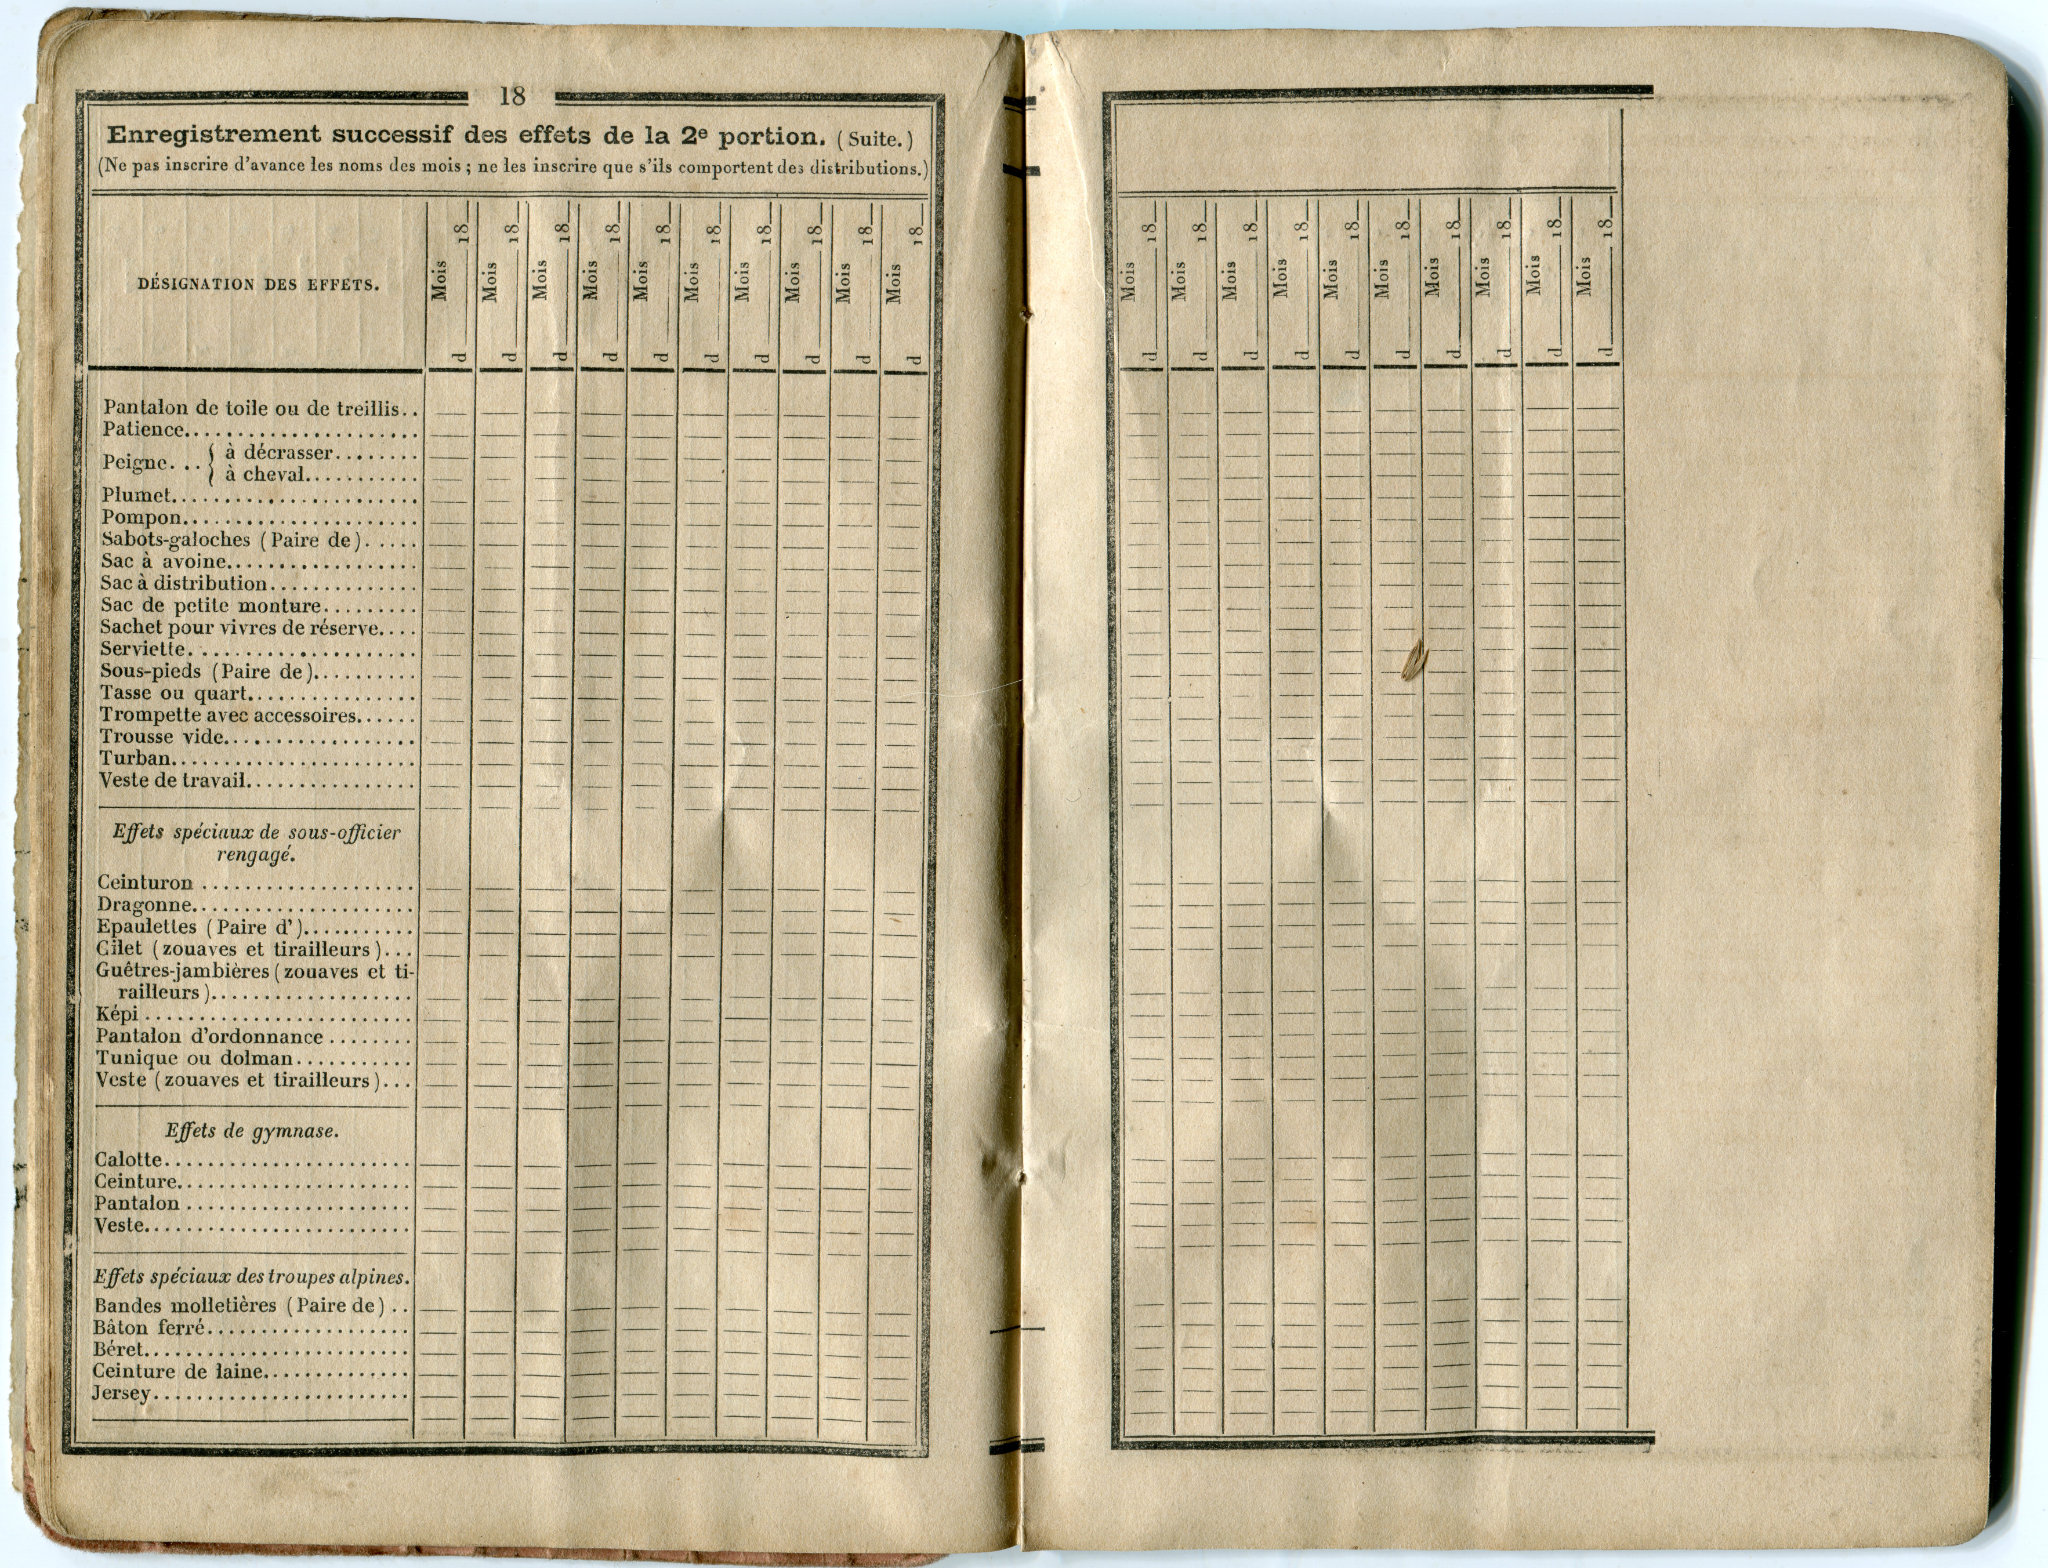 18
Enregistrement successif des effets de la 2e portion. (Suite.)
(Ne pas inscrire d'avance les noms des mois ; ne les inscrire que s'ils comportent des distributions.)
DÉSIGNATION DES EFFETS.
Mois d 18 Mois d 18 Mois d 18 Mois d 18 Mois d 18 Mois d 18 Mois d 18 Mois d 18 Mois d 18 Mois d 18
Pantalon de toile ou de treillis..
Patience......................
Peigne... { à décrasser........
à cheval...........
Plumet.......................
Pompon......................
Sabots-galoches (Paire de).....
Sac à avoine..................
Sac à distribution..............
Sac de petite monture.........
Sachet pour vivres de réserve....
Serviette.....................
Sous-pieds (Paire de)..........
Tasse ou quart................
Trompette avec accessoires......
Trousse vide..................
Turban.......................
Veste de travail................
Effets spéciaux de sous-officier
rengagé.
Ceinturon ....................
Dragonne.....................
Epaulettes (Paire d')...........
Gilet (zouaves et tirailleurs)...
Guêtres-jambières (zouaves et ti-
railleurs)...................
Képi .........................
Pantalon d'ordonnance ........
Tunique ou dolman...........
Veste (zouaves et tirailleurs)...
Effets de gymnase.
Calotte.......................
Ceinture......................
Pantalon .....................
Veste.........................
Effets spéciaux des troupes alpines.
Bandes molletières (Paire de) ..
Bâton ferré...................
Béret.........................
Ceinture de laine..............
Jersey........................
Mois d 18 Mois d 18 Mois d 18 Mois d 18 Mois d 18 Mois d 18 Mois d 18 Mois d 18 Mois d 18 Mois d 18